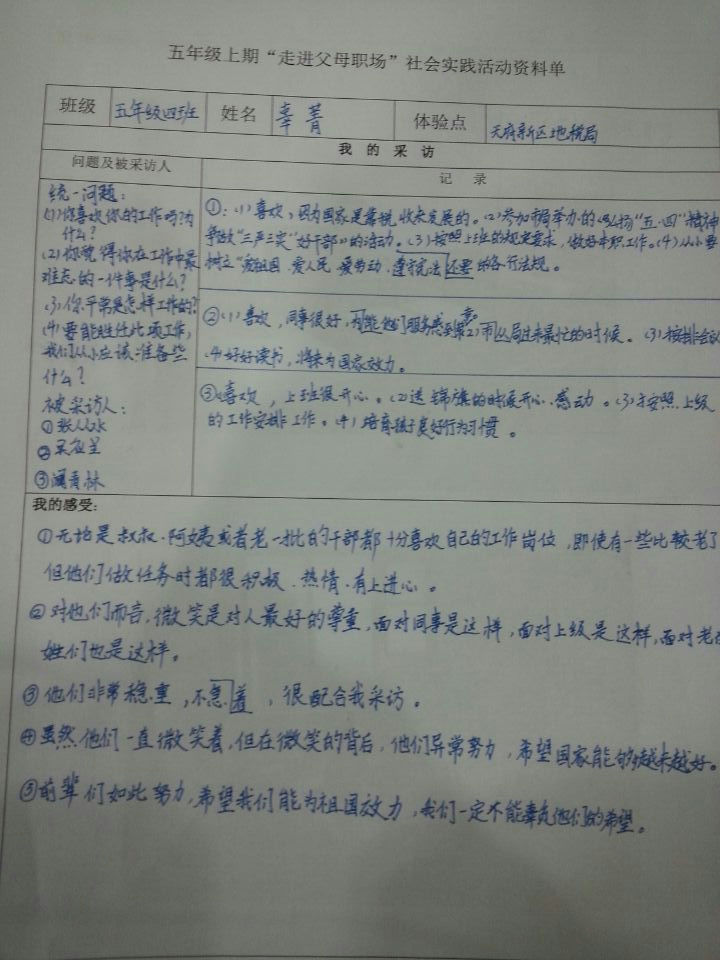 五年级上期“走进父母职场”社会实践活动资料单
班级 五年级四班 姓名 辜菁 体验点 天府新区地税局
我的采访
问题及被采访人 记录
统一问题:
(1)你喜欢你的工作吗?为
什么?
(2)你觉得你在工作中最
难忘的一件事是什么?
(3)你平常是怎样工作的?
(4)要能胜任此项工作,
我们从小应该准备些
什么?
被采访人:
①
②
③
①:(1)喜欢,因为国家是靠税收来发展的。(2)参加市局举办的《弘扬“五·四”精神
争做“三严三实”好干部》的活动。(3)按照上班的规定要求,做好本职工作。(4)从小要
树立“爱祖国、爱人民、爱劳动、遵守宪法还要的各行法规。
②(1)喜欢,同事很好,为能他们服务感到荣幸。(2)市局过来最忙的时候。(3)按排会议
(4)好好读书,将来为国家效力。
③(1)喜欢,上班很开心。(2)送锦旗的时候开心、感动。(3)按照上级
的工作安排工作。(4)培育孩子良好行为习惯。
我的感受:
①无论是叔叔、阿姨或者老一批的干部都十分喜欢自己的工作岗位,即使有一些比较老了
但他们做任务时都很积极、热情、有上进心。
②对他们而言,微笑是对人最好的尊重,面对同事是这样,面对上级是这样,面对老百
姓们也是这样。
③他们非常稳重,不急着,很配合我采访。
④虽然他们一直微笑着,但在微笑的背后,他们异常努力,希望国家能够越来越好。
⑤前辈们如此努力,希望我们能为祖国效力,我们一定不能辜负他们的希望。